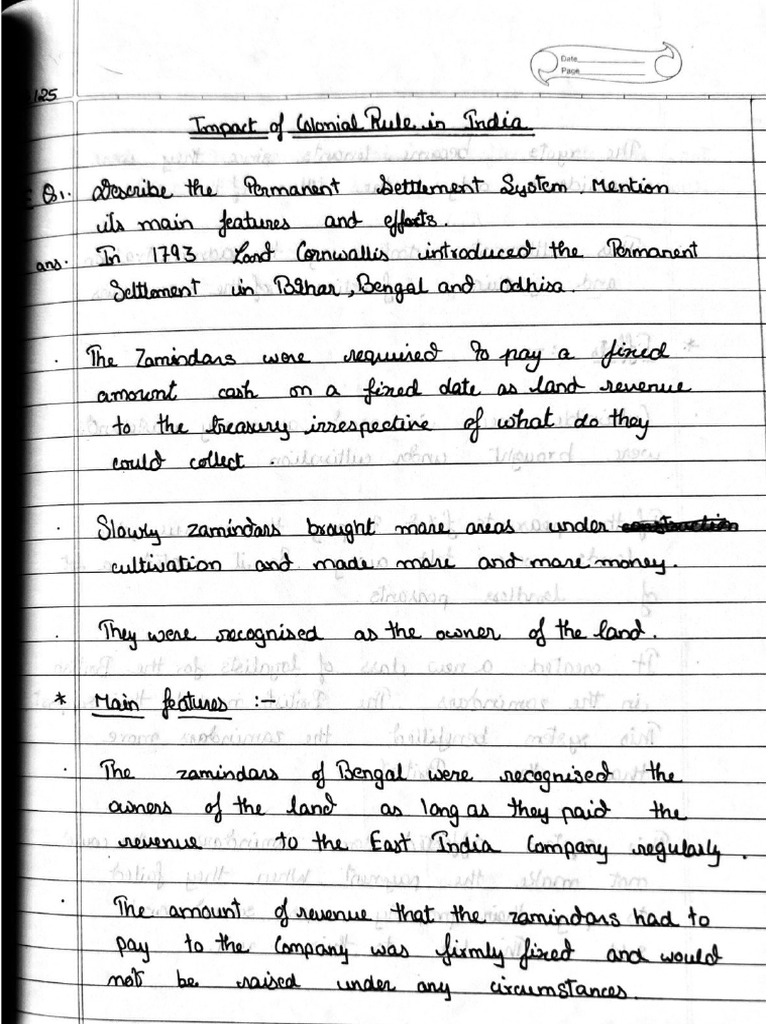 Date
Page
125
Impact of Colonial Rule in India
Q1. Describe the Permanent Settlement System. Mention
its main features and effects.
ans. In 1793 Lord Cornwallis introduced the Permanent
Settlement in Bihar, Bengal and Odhisa.
. The Zamindars were required to pay a fixed
amount cash on a fixed date as land revenue
to the treasury irrespective of what do they
could collect.
. Slowly zamindars brought more areas under construction
cultivation and made more and more money.
. They were recognised as the owner of the land.
* Main features :-
. The zamindars of Bengal were recognised the
owners of the land as long as they paid the
revenue to the East India Company regularly.
. The amount of revenue that the zamindars had to
pay to the Company was firmly fixed and would
not be raised under any circumstances.